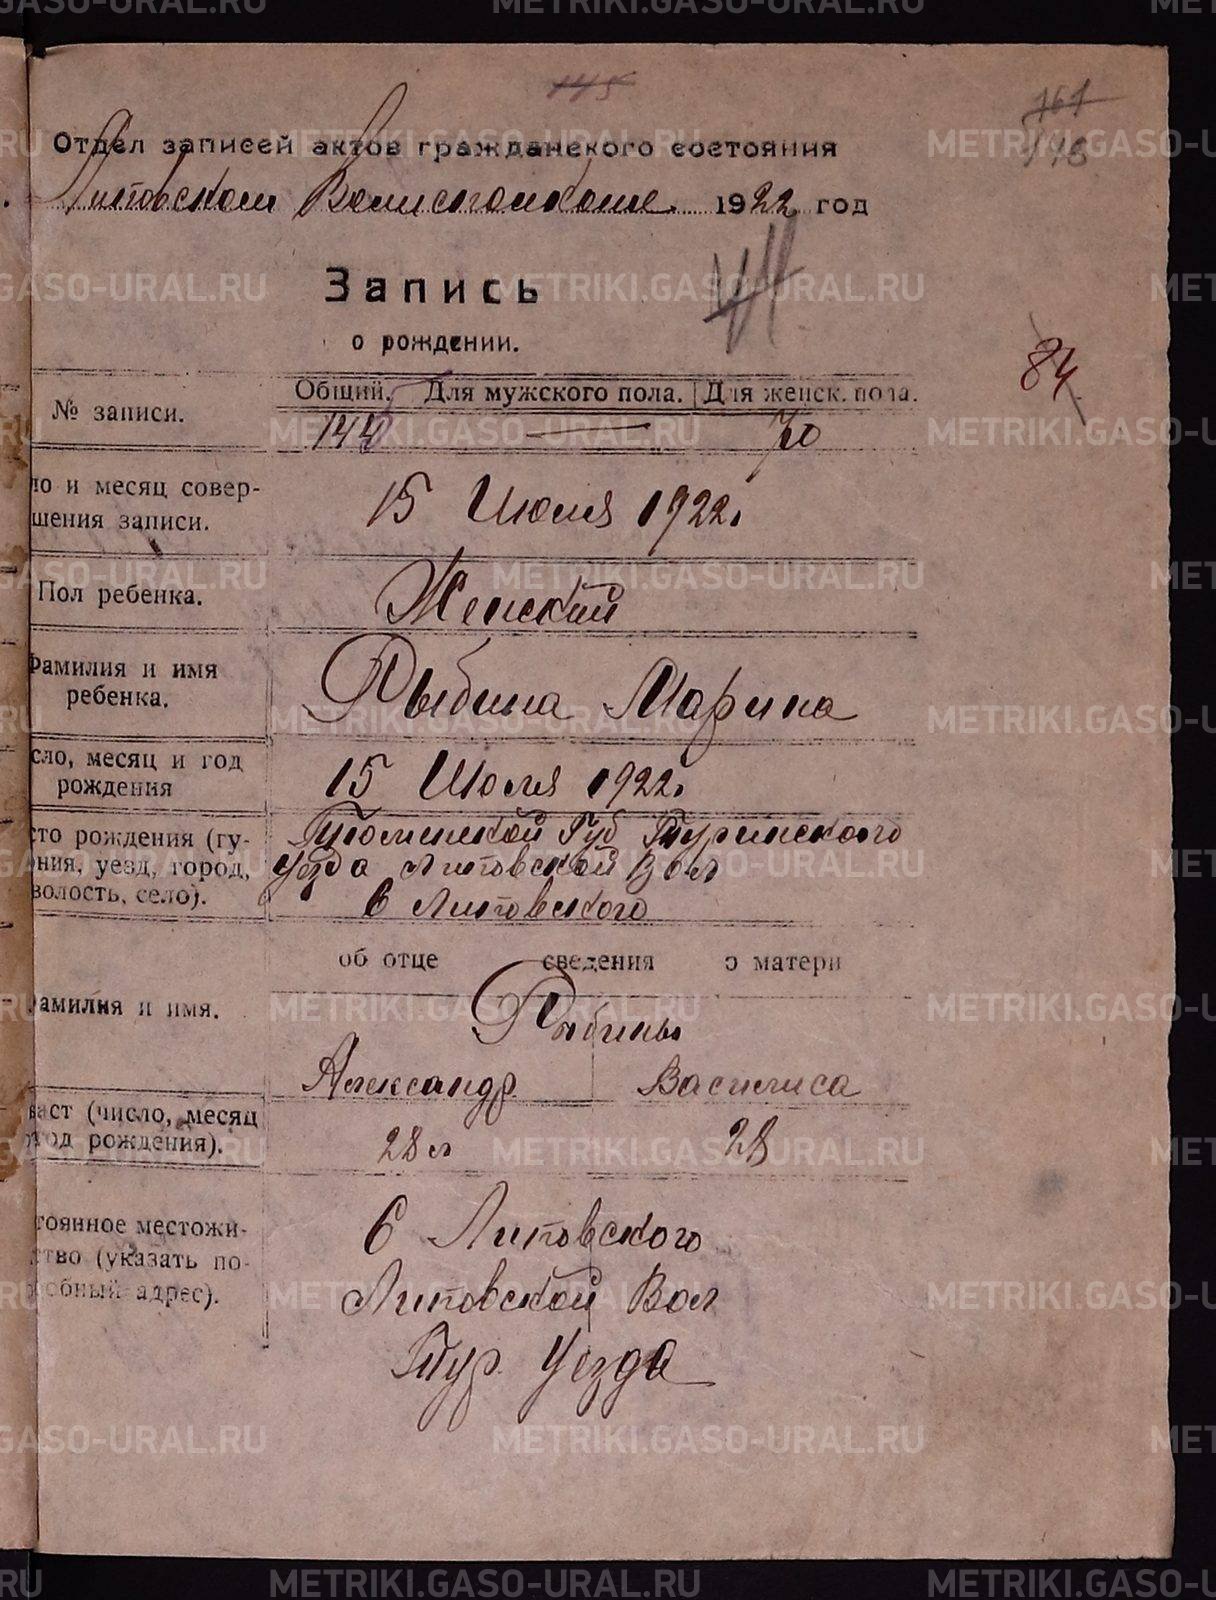 145
161
148
Отдел записей актов гражданского состояния
Липовском Волисполкоме 1922 год
Запись
о рождении.
84
Общий. Для мужского пола. Для женск. пола.
№ записи. 144 — 70
ло и месяц совер-
шения записи.
15 Июля 1922.
Пол ребенка. Женский
Фамилия и имя
ребенка.
Рыбина Марина
сло, месяц и год
рождения
15 Июля 1922.
сто рождения (гу-
рния, уезд, город,
волость, село).
Тюменской Губ Туринского
уезда Липовской Вол
с Липовского
об отце сведения о матери
амилия и имя.
Рыбины
Александр Василиса
раст (число, месяц
год рождения).
28 л 28
тоянное местожи-
ство (указать по-
робный адрес).
с Липовского
Липовской Вол
Тур. Уезда
METRIKI.GASO-URAL.RU